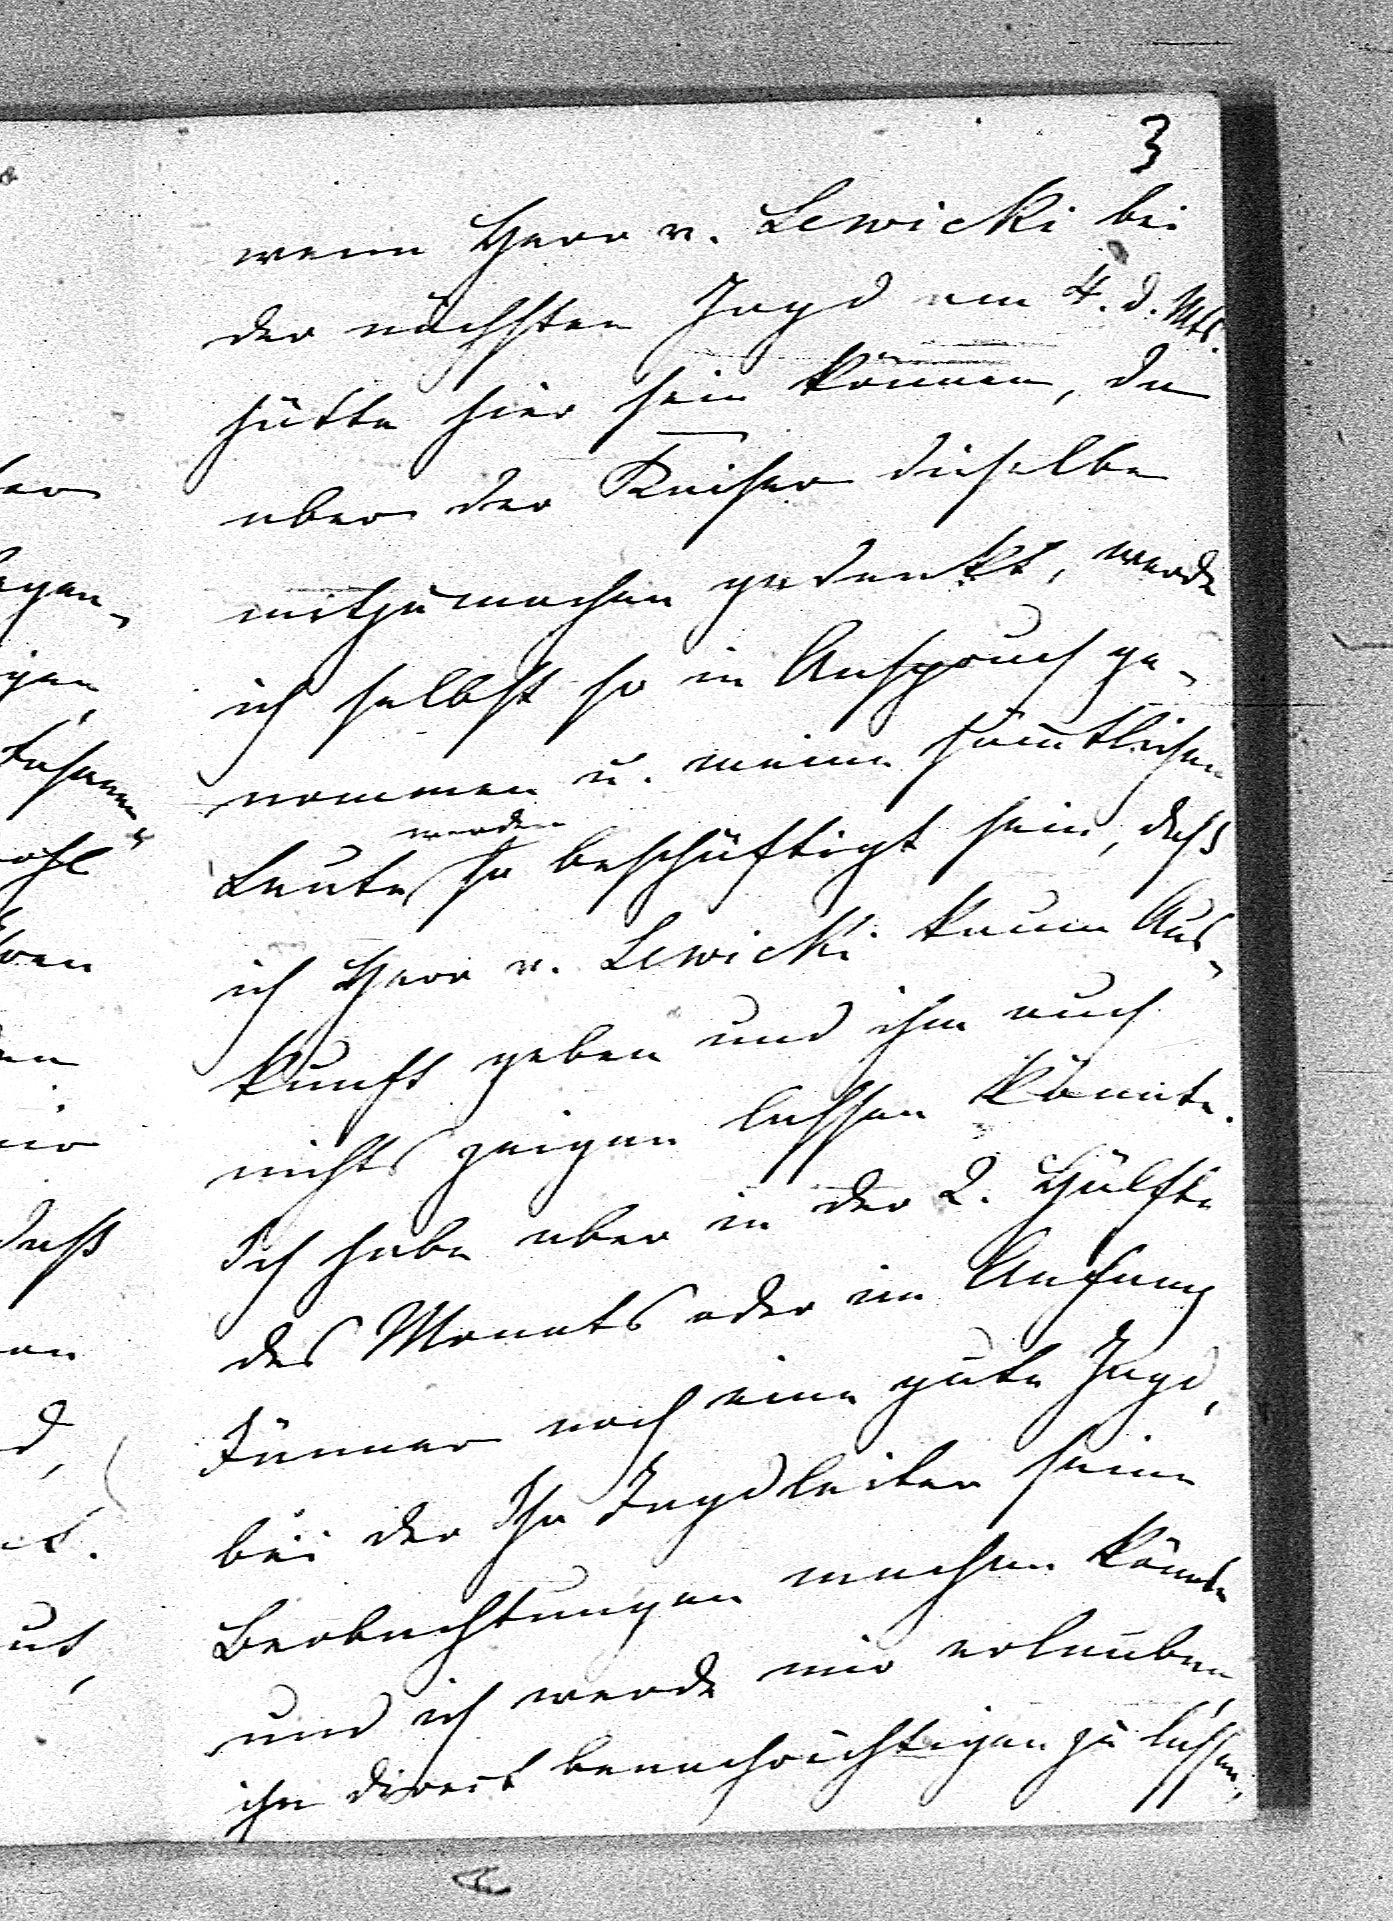 3
wenn Herr v. Lewicki bei
der nächsten Jagd am 4. d. Mts.
hätte hier sein können, da
aber der Kaiser dieselbe
mitzumachen gedenkt, werde
ich selbst so in Anspruch ge-
nommen u. meine sämtlichen
werden
Leute so beschäftigt sein, daß
ich Herr v. Lewicki kaum Aus-
kunft geben und ihm auch
nichts zeigen lassen könnte.
Ich habe aber in der 2. Hälfte
des Monats oder im Anfang
Jänner noch eine gute Jagd,
bei der Ihr Jagdleiter seine
Beobachtungen machen könnte
und ich werde mir erlauben,
ihn direct benachrichtigen zu lassen,